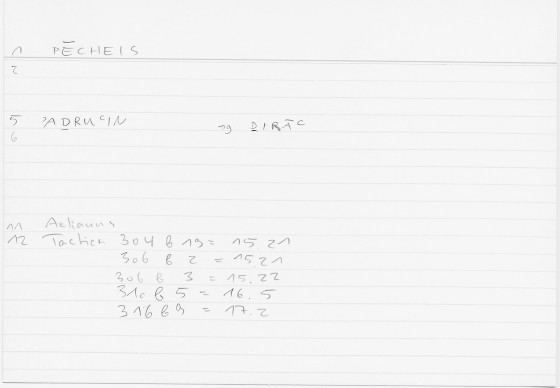 1 PĒCHEIS
2
5 ADRUCIN → DIRĀC
6
11 Aelianus
12 Tactica 304 b 19 = 15.21
306 b 2 = 15.21
306 b 3 = 15.22
31c b 5 = 16.5
316 b 9 = 17.2